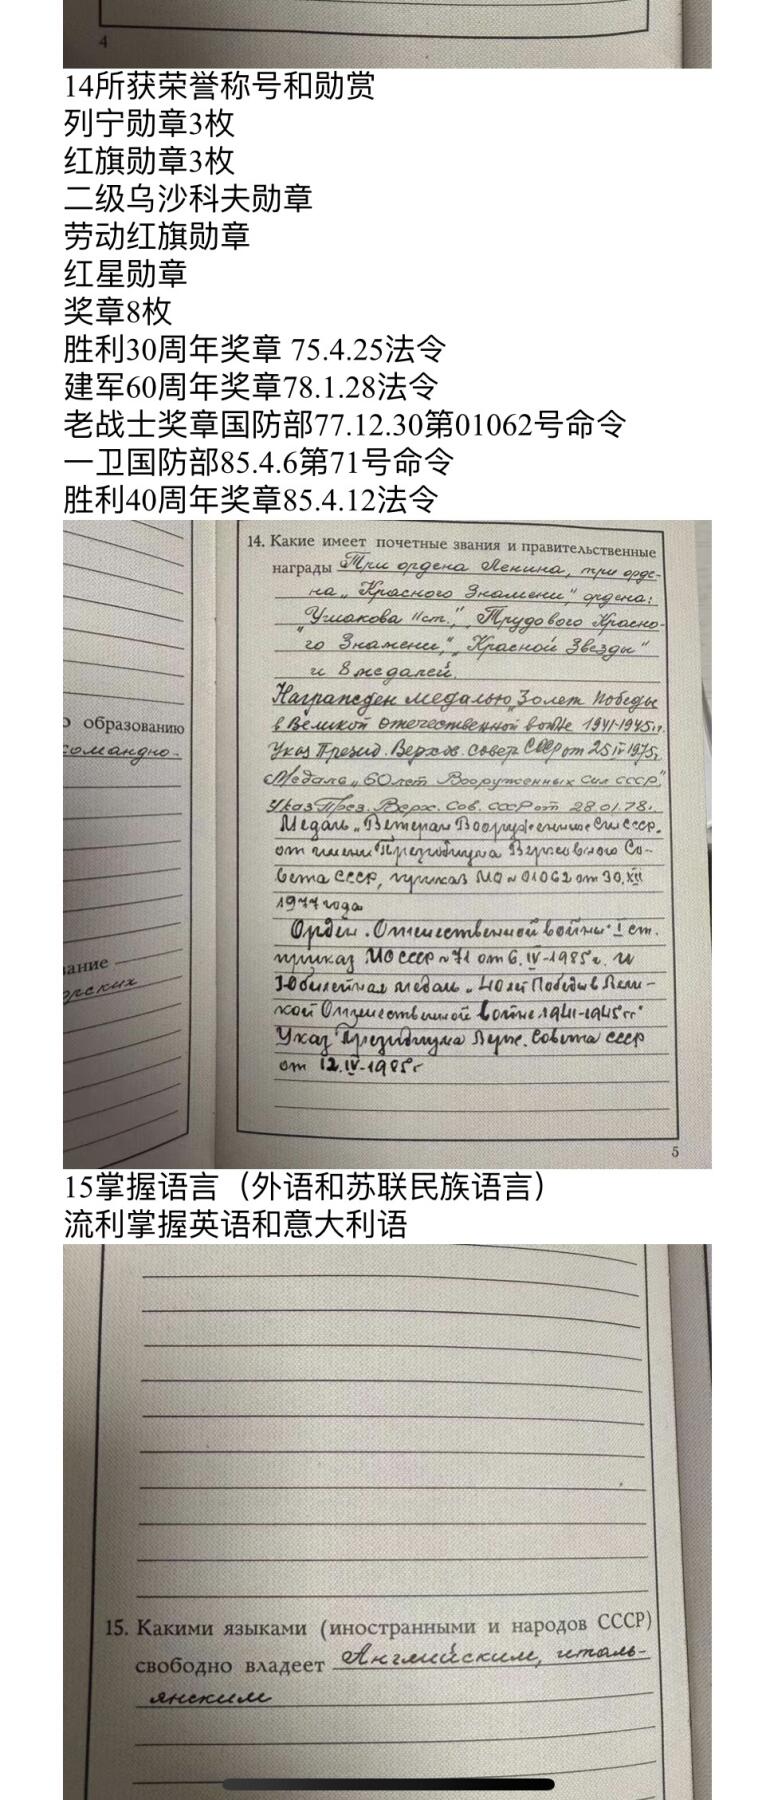 4
14所获荣誉称号和勋赏
列宁勋章3枚
红旗勋章3枚
二级乌沙科夫勋章
劳动红旗勋章
红星勋章
奖章8枚
胜利30周年奖章 75.4.25法令
建军60周年奖章78.1.28法令
老战士奖章国防部77.12.30第01062号命令
一卫国防部85.4.6第71号命令
胜利40周年奖章85.4.12法令
образованию
командно-
14. Какие имеет почетные звания и правительственные
награды Три ордена Ленина, три орде-
на „Красного Знамени", ордена:
"Ушакова II ст.", „Трудового Красно-
го Знамени", „Красной Звезды"
и 8 медалей.
Награжден медалью „30 лет Победы
в Великой Отечественной войне 1941-1945гг.
Указ Презид. Верхов. Совет СССР от 25 IV 1975г.
Медаль „60 лет Вооруженных Сил СССР"
Указ През. Верх. Сов. СССР от 28.01.78г.
Медаль „Ветеран Вооруженных Сил СССР.
от имени Президиума Верховного Со-
вета СССР, приказ МО № 01062 от 30.XII
1977 года
Орден „Отечественной войны" I ст.
приказ МО СССР № 71 от 6.IV-1985г. и
Юбилейная медаль „40 лет Победы в Вели-
кой Отечественной войне 1941-1945гг"
Указ Президиума Верх. Совета СССР
от 12.IV-1985г
5
15掌握语言（外语和苏联民族语言）
流利掌握英语和意大利语
15. Какими языками (иностранными и народов СССР)
свободно владеет Английским, италь-
янским